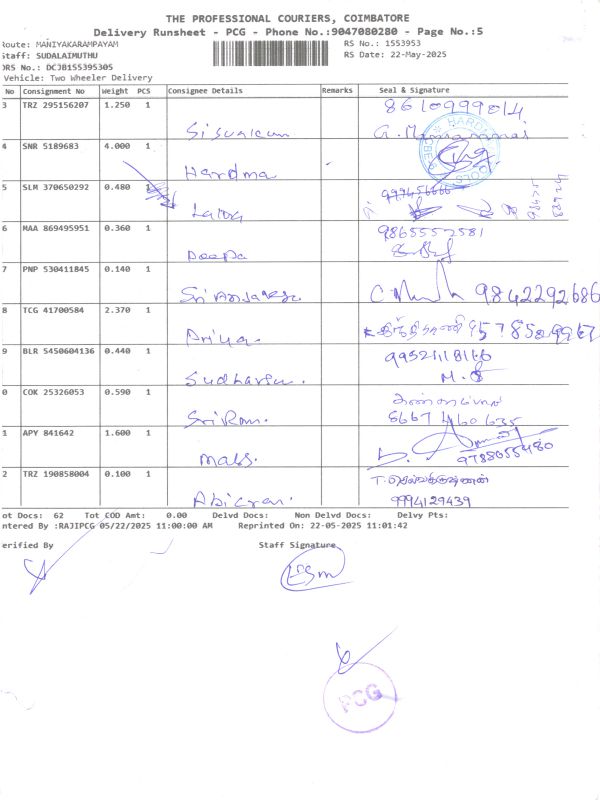 THE PROFESSIONAL COURIERS, COIMBATORE
Delivery Runsheet - PCG - Phone No.:9047080280 - Page No.:5
Route: MANIYAKARAMPAYAM
RS No.: 1553953
Staff: SUDALAIMUTHU
RS Date: 22-May-2025
DRS No.: DCJB155395305
Vehicle: Two Wheeler Delivery
No Consignment No Weight PCS Consignee Details Remarks Seal & Signature
3 TRZ 295156207 1.250 1 8610999014
4 SNR 5189683 4.000 1
Hardma
5 SLM 370650292 0.480 1
6 MAA 869495951 0.360 1 9865552581
Deepa
7 PNP 530411845 0.140 1
9842292686
8 TCG 41700584 2.370 1
Priya
9 BLR 5450604136 0.440 1
Sudharsu. M.S
0 COK 25326053 0.590 1
SriRam. 8667460635
1 APY 841642 1.600 1
Mass. 9788055480
2 TRZ 190858004 0.100 1
9994129439
ot Docs: 62 Tot COD Amt: 0.00 Delvd Docs: Non Delvd Docs: Delvy Pts:
ntered By :RAJIPCG 05/22/2025 11:00:00 AM Reprinted On: 22-05-2025 11:01:42
erified By Staff Signature
PCG